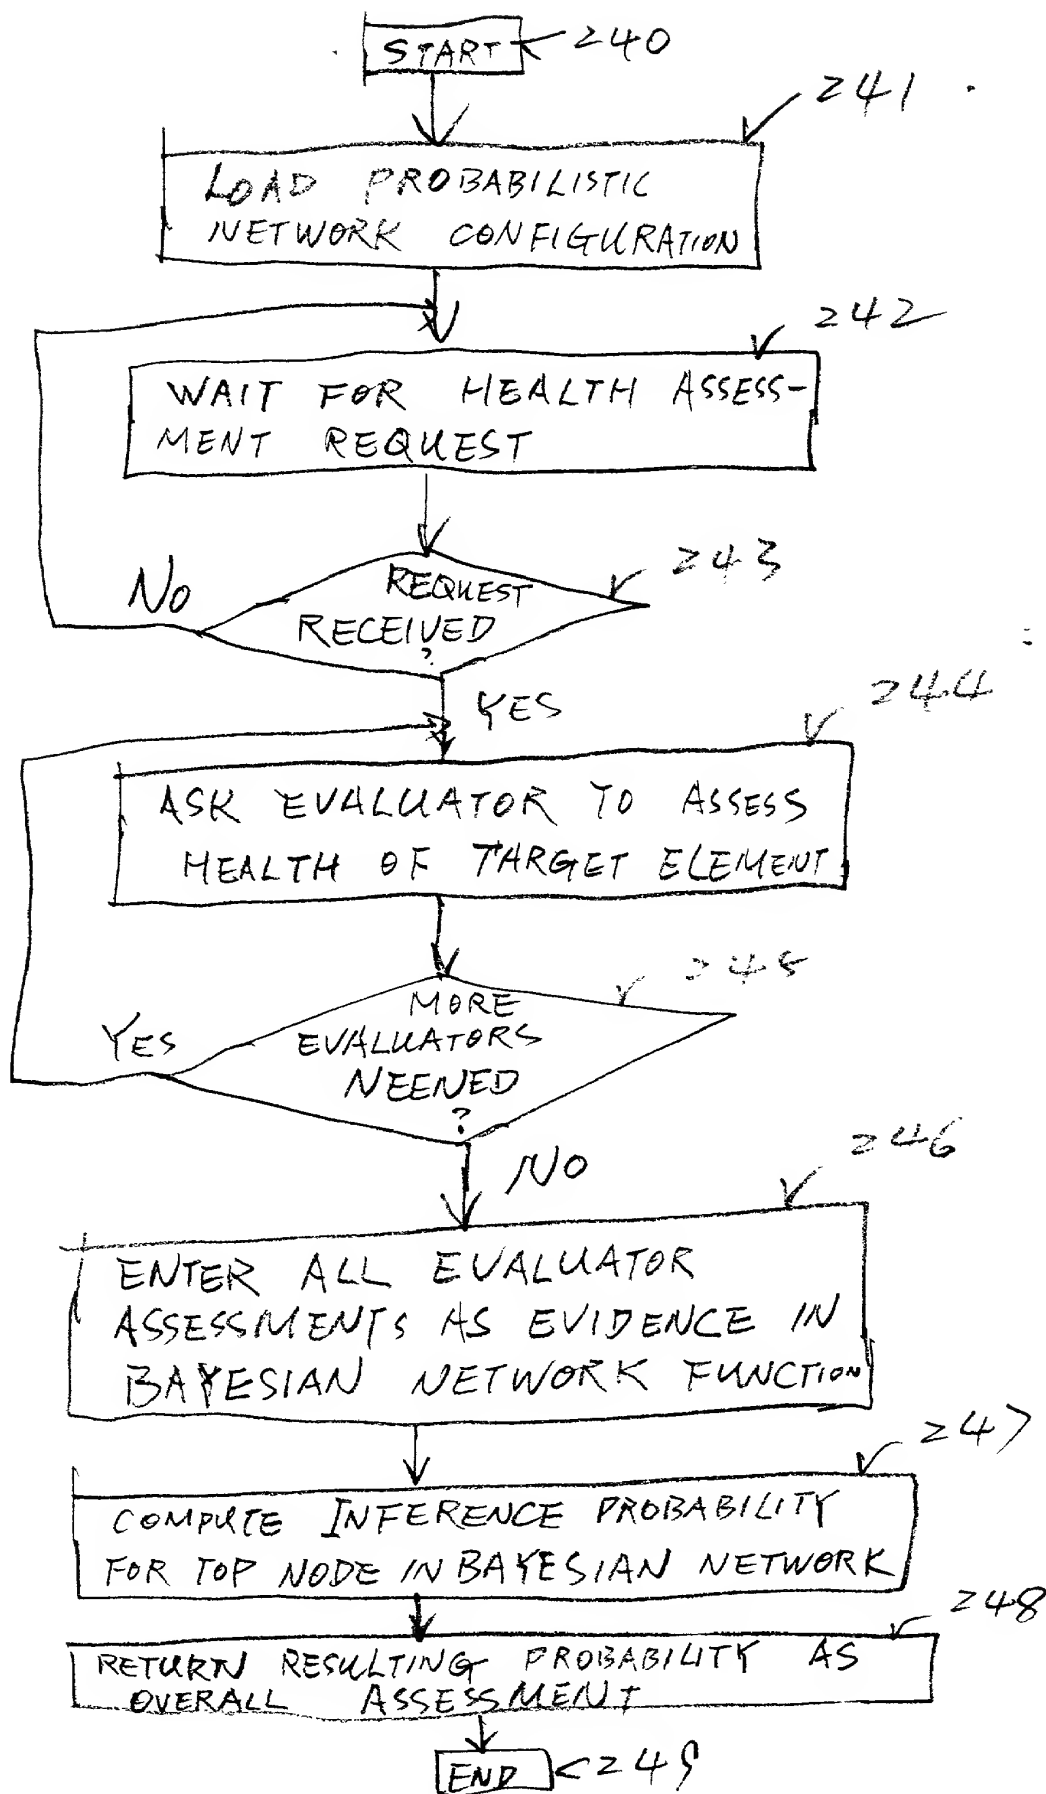 START
240
241
LOAD PROBABILISTIC
NETWORK CONFIGURATION
242
WAIT FOR HEALTH ASSESS-
MENT REQUEST
243
REQUEST
RECEIVED
?
NO
YES
244
ASK EVALUATOR TO ASSESS
HEALTH OF TARGET ELEMENT
245
MORE
EVALUATORS
NEENED
?
YES
NO
246
ENTER ALL EVALUATOR
ASSESSMENTS AS EVIDENCE IN
BAYESIAN NETWORK FUNCTION
247
COMPUTE INFERENCE PROBABILITY
FOR TOP NODE IN BAYESIAN NETWORK
248
RETURN RESULTING PROBABILITY AS
OVERALL ASSESSMENT
END
249